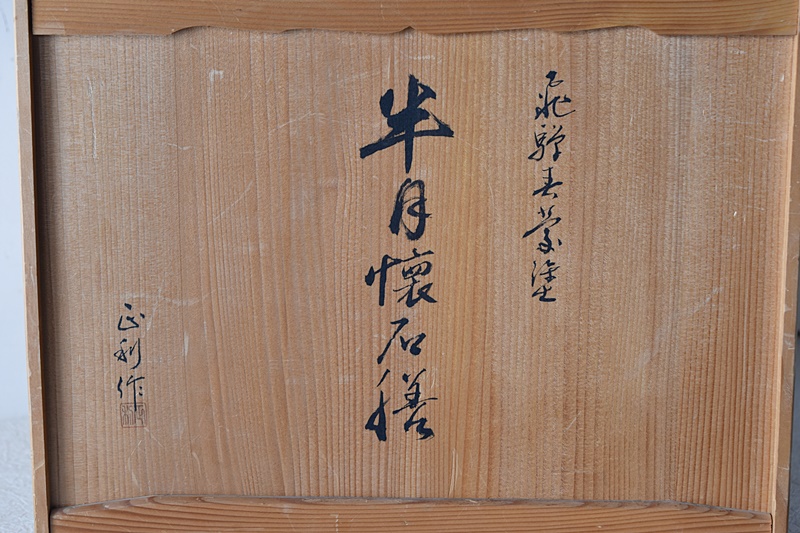 飛驒春慶塗
半月懷石膳
正利作